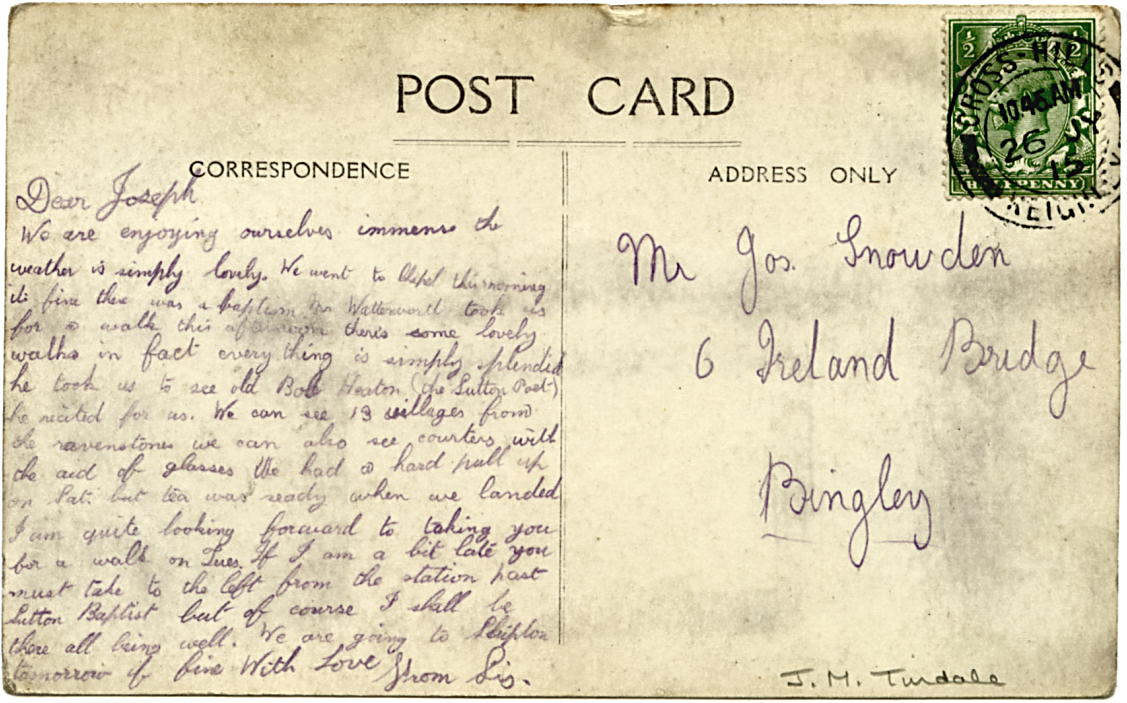 POST CARD
CORRESPONDENCE
ADDRESS ONLY
Dear Joseph
We are enjoying ourselves immense the
weather is simply lovely. We went to Chapel this morning
its fine there was a baptism Mr Watterworth took us
for a walk this afternoon there's some lovely
walks in fact every thing is simply splendid
he took us to see old Bob Heaton (the Sutton Poet)
he recited for us. We can see 13 villages from
the ravenstones we can also see courters with
the aid of glasses We had a hard pull up
on Sat. but tea was ready when we landed
I am quite looking forward to taking you
for a walk on Tues. If I am a bit late you
must take to the left from the station past
Sutton Baptist but of course I shall be
there all being well. We are going to Skipton
tomorrow if fine With Love from Sis.
Mr Jos. Snowden
6 Ireland Bridge
Bingley
J. M. Tindale
½ ½
HALFPENNY
CROSS-HILLS
10.45 AM
26
15
KEIGHLEY